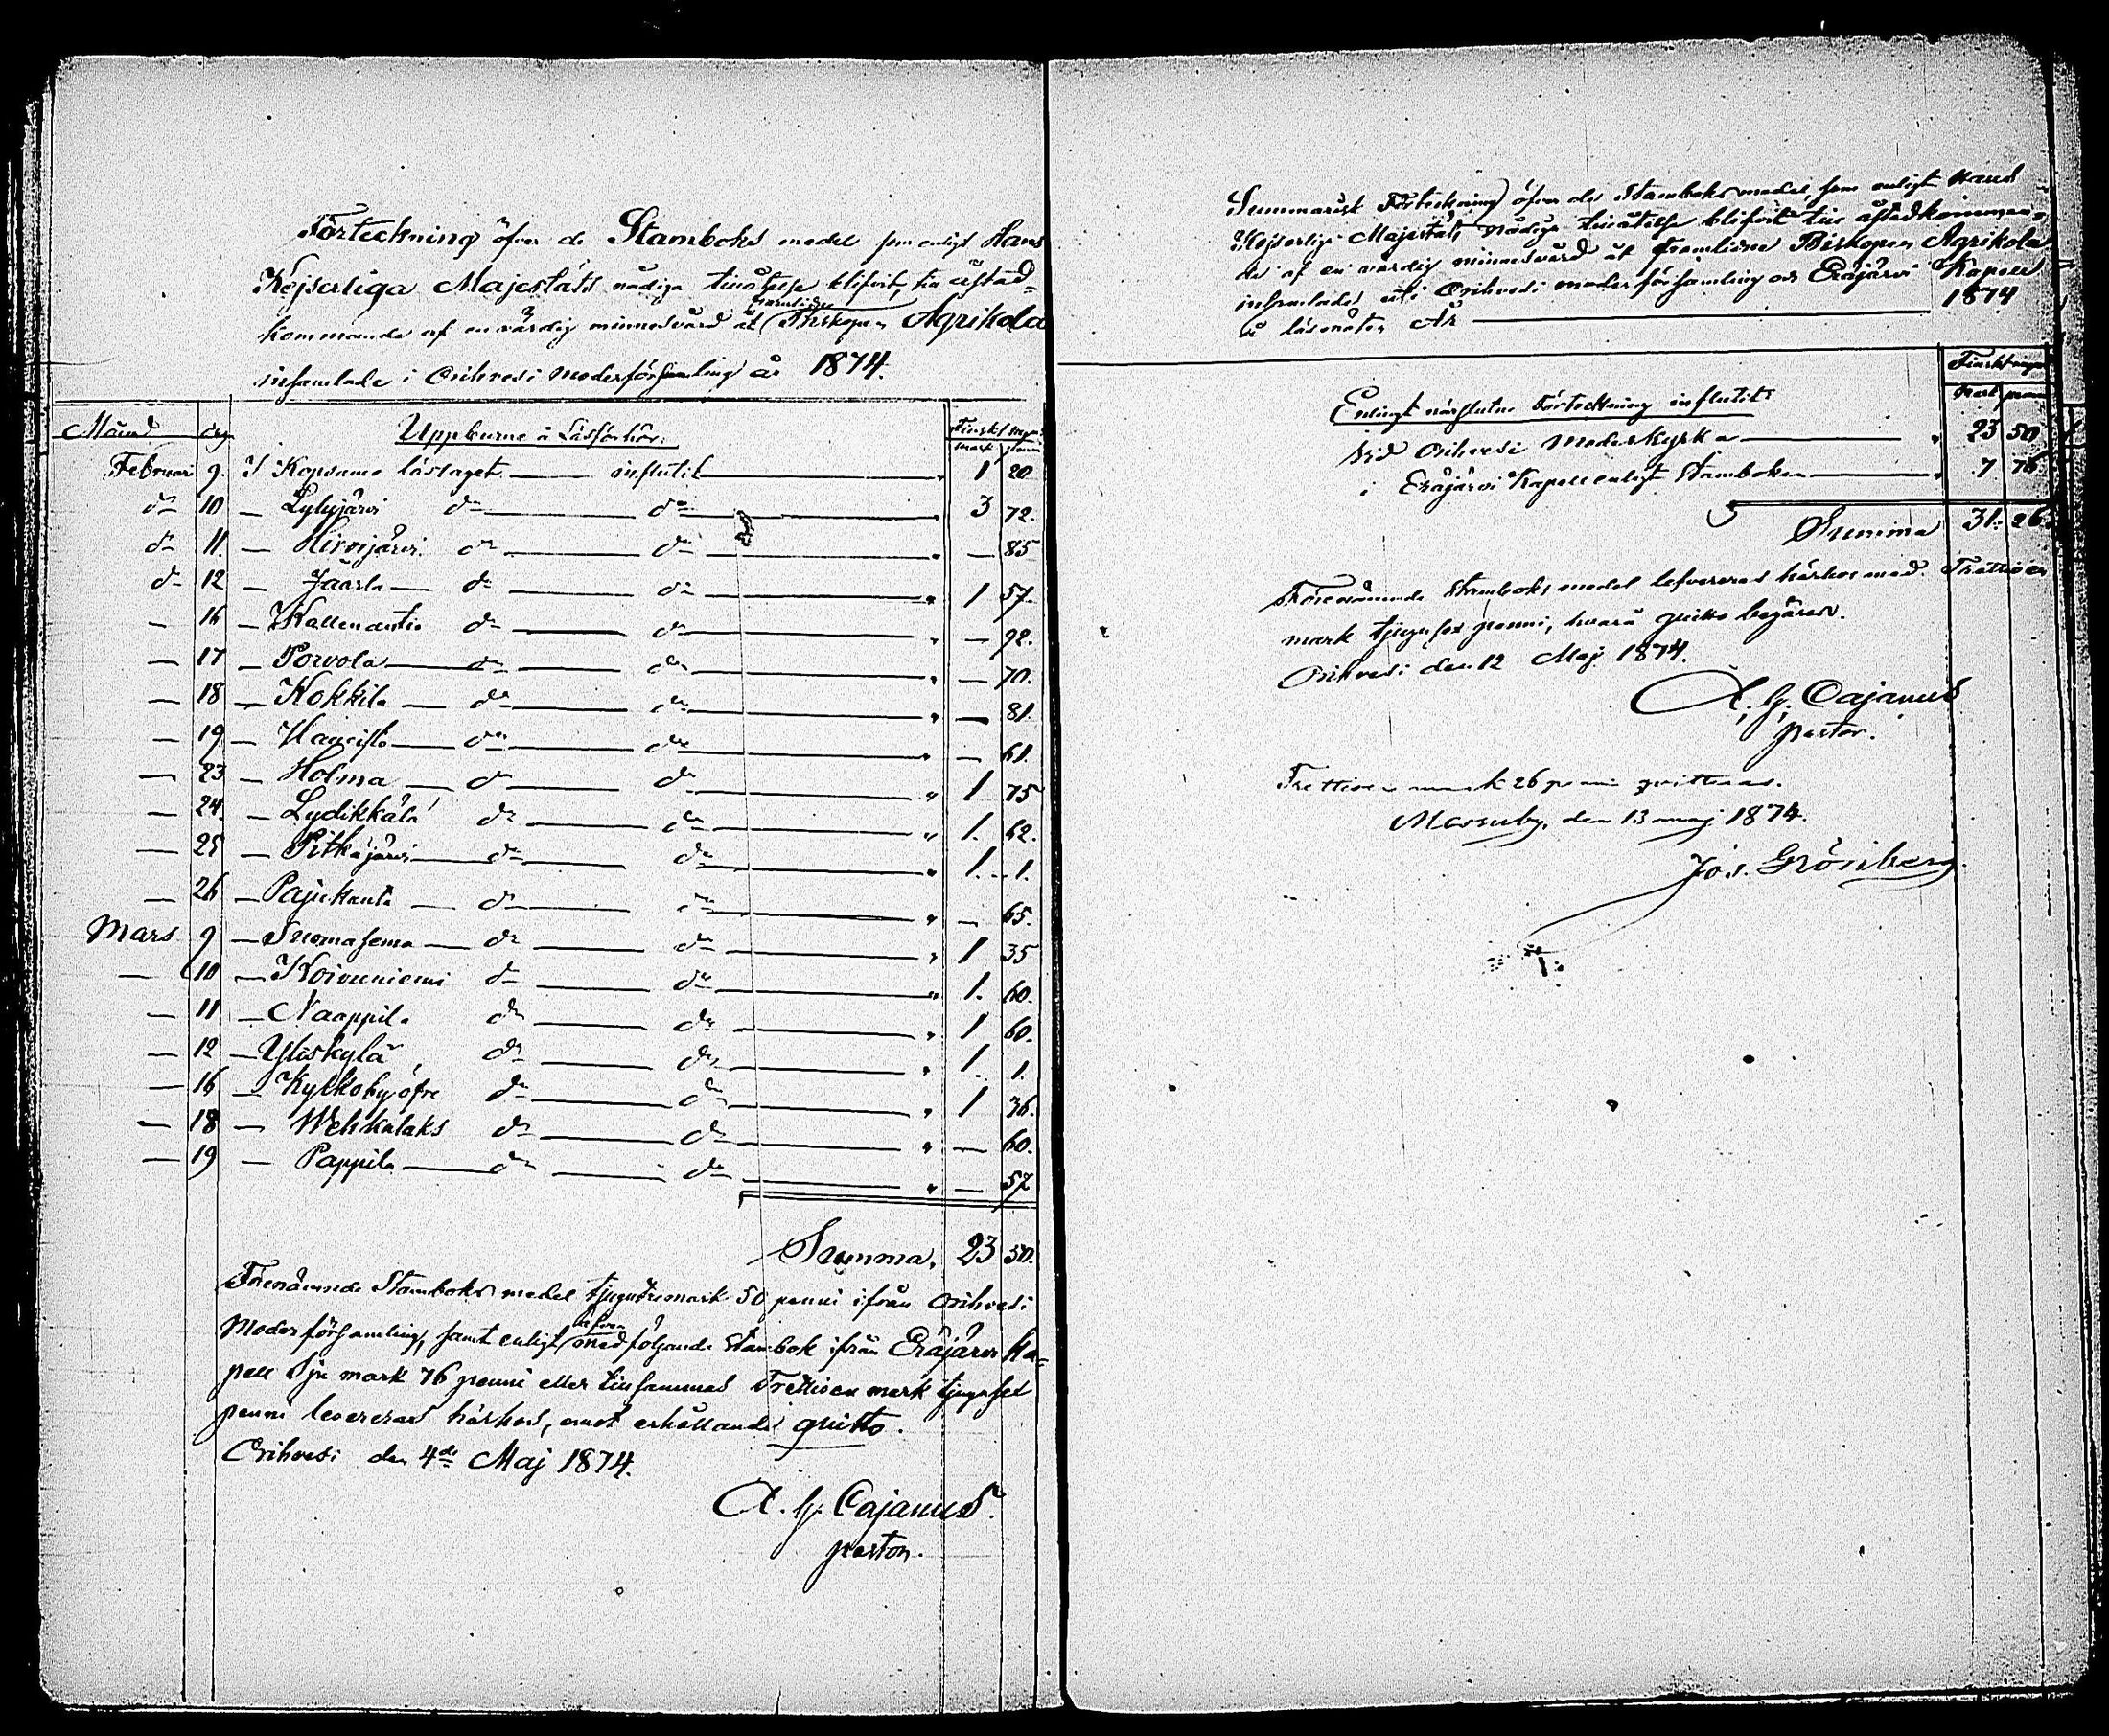 Förteckning öfver de Stamboks medel som enligt Hans
Kejserliga Majestäts nådiga tillåtelse blifvit, till åstad-
kommande af en värdig minnesvård åt framlidne Biskopen Agrikola
insamlade i Orihvesi moderförsamling år 1874.
Månad dag Uppburne å Läsförhör: Finskt mynt
mark penni
Februari 9. I Kopsamo läslaget influtit " 1 20
do 10 — Lyhyjärvi do do " 3 72.
do 11. — Hirvijärvi do do " — 85
do 12 — Jäärla do do " 1 57.
— 16 — Kallenautio do do " — 92.
— 17 — Porvola do do " — 70.
— 18 — Kokkila do do " — 81.
— 19 — Haavisto do do " — 61.
— 23 — Holma do do " 1 75
— 24 — Lydikkälä do do " 1. 62.
— 25 — Pitkäjärvi do do " 1. 1.
— 26 — Pajukanta do do " — 65.
Mars 9 — Suomasema do do " 1 35
— 10 — Koivuniemi do do " 1. 60.
— 11 — Naappila do do " 1 60.
— 12 — Yliskylä do do " 1 1.
— 16 — Kylkobyöfre do do " 1 36.
— 18 — Wehkalaks do do " — 60.
— 19 — Pappila do do " — 57
Summa, 23 50.
Förenämnde Stamboks medel tjugutre mark 50 penni ifrån Orihvesi
Moderförsamling, samt enligt äfven medföljande Stambok ifrån Eräjärvi Ka-
pell Sju mark 76 penni eller tillsammans Trettioen mark tjugusex
penni levereras härhos, emot erhållande qvitto.
Orihvesi den 4de Maj 1874.
A. G. Cajanus.
pastor.
Summarisk Förteckning öfver de Stamboks medel, som enligt Hans
Kejserliga Majestäts nådiga tillåtelse blifvit till åstadkomman-
de af en värdig minnesvård åt framlidne Biskopen Agrikola
insamlades uti Orihvesi moderförsamling och Eräjärvi Kapell
å läsmöten År 1874
Finskt mynt
Mark penni
Enligt närslutne Förteckning influtit
vid Orihvesi Moderkyrka " 23 50
i Eräjärvi Kapell enligt Stamboken " 7 76
Summa 31. 26.
Förenämnde Stamboks medel lefvereras härhos med Trettioen
mark tjugusex penni, hvarå qvitto begäres.
Orihvesi den 12 Maj 1874.
A. G. Cajanus
pastor.
Trettioen mark 26 penni qvitteras.
Messuby, den 13 maj 1874.
Jos. Grönberg.